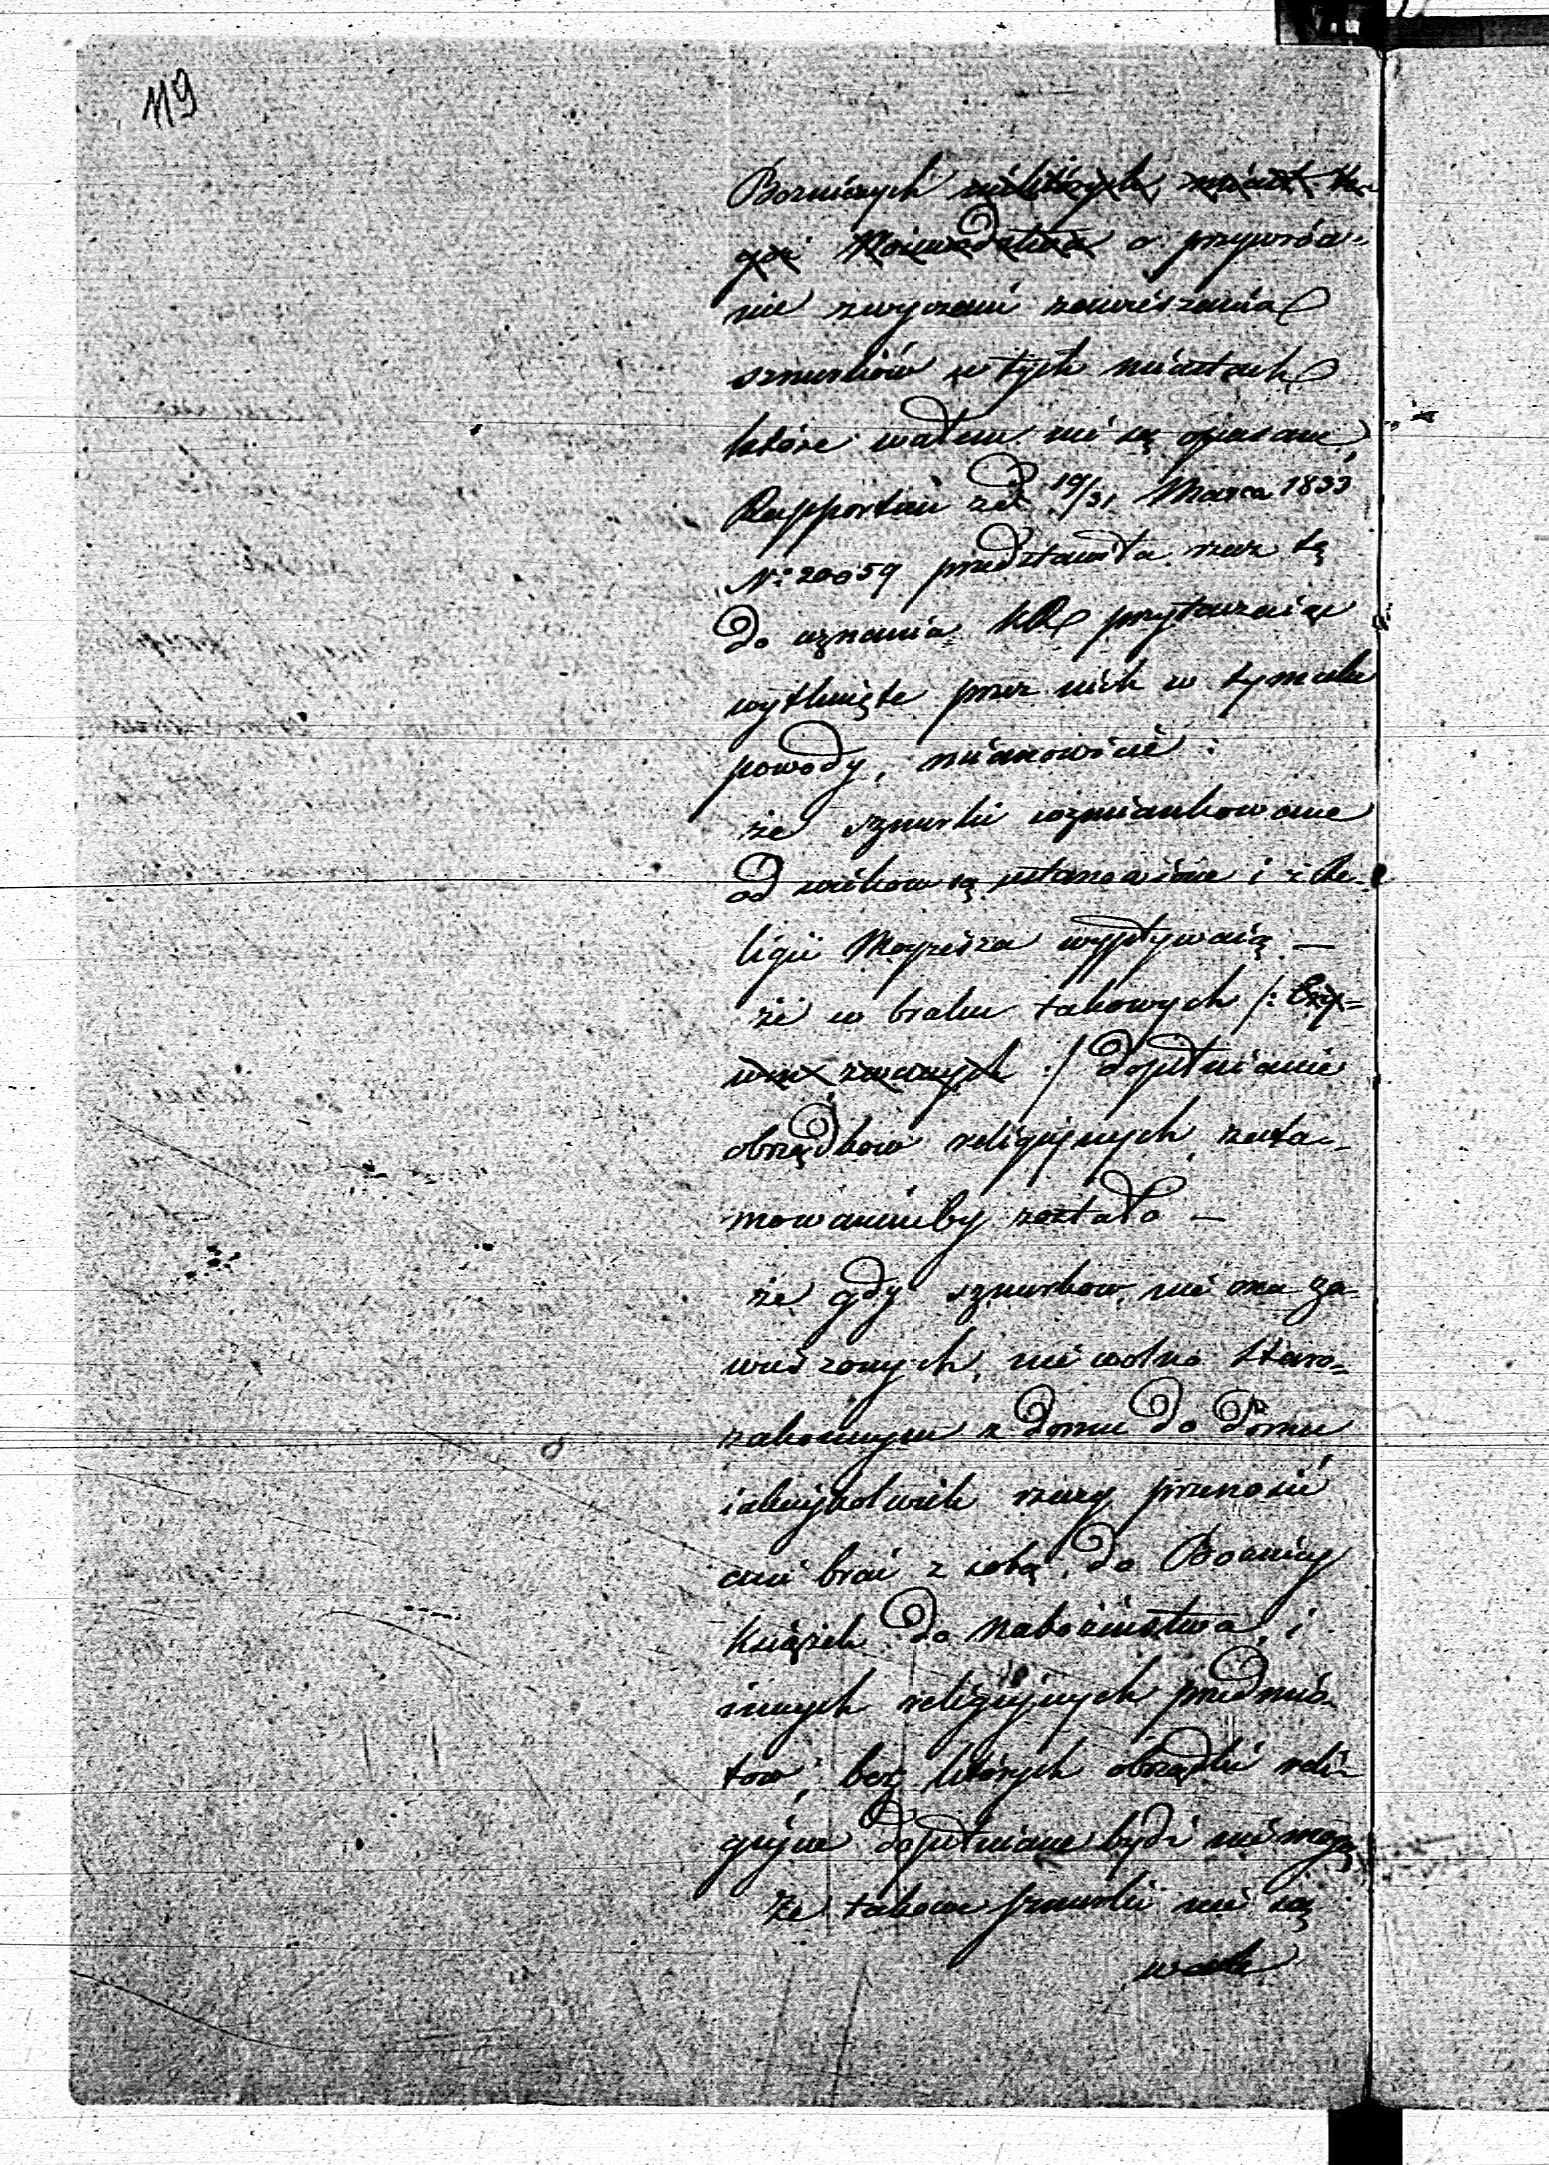 119
Bozniczych niektórych miast te-
goż Województwa o przywróce-
nie zwyczaiu zawieszania
sznurków w tych miastach
które wałem nie są opasane,
Rapportem zd. 19/31 Marca 1833
Nº 20059 przedstawiła rzecz tę
do uznania KR przytaczaiąc
wytknięte przez nich w tym celu
powody, mianowicie:
że sznurki wzmiankowane
od wieków są ustanowione i z Re-
ligii Moyżesza wypływaią —
że w braku takowych /:
zwanych :/ dopełnianie
obrządków religijnych zata-
mowaneby zostało —
że gdy sznurków nie ma za-
wieszonych, nie wolno Staro-
zakonnym z domu do domu
iakieykolwiek rzeczy przenosić
ani brać z sobą do Boznicy
książek do nabożeństwa i
innych religijnych przedmio-
tów, bez których obrządki reli-
gijne dopełniane bydź nie mogą
że takowe sznurki nie są
wcale